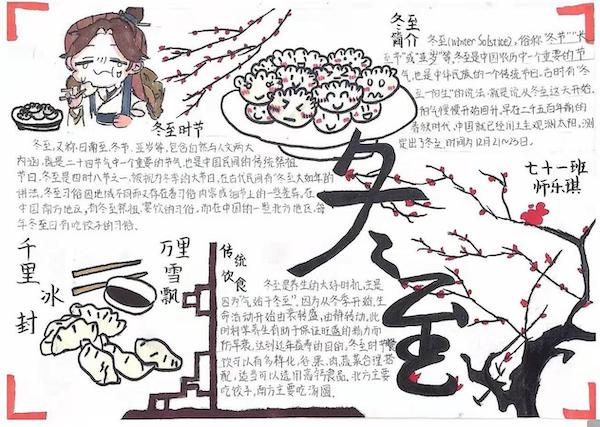 冬至
简介
冬至(Winter Solstice)，俗称“冬节”“长
至节”或“亚岁”等，冬至是中国农历中一个重要的节
气，也是中华民族的一个传统节日。古时有“冬
至一阳生”的说法，就是说从冬至这天开始，
阳气慢慢开始回升，早在二千五百年前的
春秋时代，中国就已经用土圭观测太阳，测
定出了冬至，时间为12月21~23日。
冬至时节
冬至，又称日南至、冬节、亚岁等，包含自然与人文两大
内涵，既是二十四节气中一个重要的节气，也是中国民间的传统祭祖
节日。冬至是四时八节之一，被视为冬季的大节日，在古代民间有“冬至大如年的
讲法。冬至习俗因地域不同而又存在着习俗内容或细节上的一些差异。在
中国南方地区，有冬至祭祖、宴饮的习俗。而在中国的一些北方地区，每
年冬至日有吃饺子的习俗。
七十一班
师乐琪
冬至
千里
冰封
万里
雪飘
传统
饮食
冬至是养生的大好时机，主要是
因为“气始于冬至”，因为从冬季开始，生
命活动开始由衰转盛，由静转动。此
时科学养生有助于保证旺盛的精力而
防早衰，达到延年益寿的目的。冬至时节
饮食可以有多样化，谷、果、肉、蔬菜合理搭
配，适当可以选用高钙食品。北方主要
吃饺子，南方主要吃汤圆。